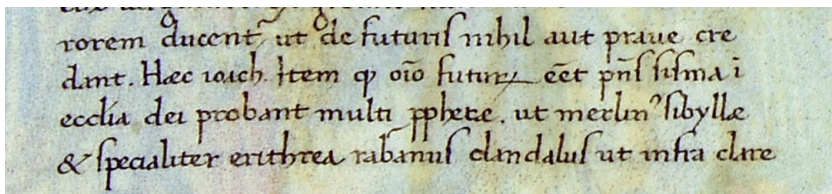 rorem ducent᷑ ut de futuris nihil aut praue cre
dant. Hæc ioach. Item ꝙ oīo futuꝝ eēt pn̄s sisma ī
ecclīa dei probant multi ꝓphete, ut merlinꝰ sibyllæ
& specialiter erithrea rabanus dandalus ut infra clare